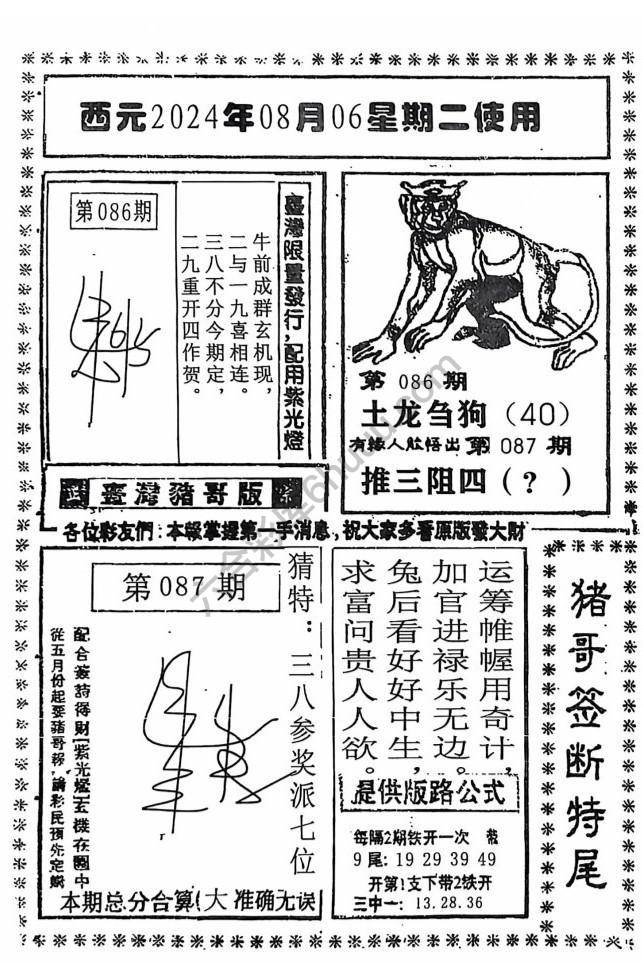 西元2024年08月06星期二使用
第086期
臺灣限量發行，配用紫光燈
牛前成群玄机现，
二与一九喜相连。
三八不分今期定，
二九重开四作贺。
第 086 期
土龙刍狗（40）
有緣人能悟出 第 087 期
推三阻四（？）
臺灣豬哥版
各位彩友們：本報掌握第一手消息，祝大家多看原版發大財
第 087 期
猜特：三八参奖派七位
配合簽詩得財[紫光燈]玄機在圖中
從五月份起要豬哥報，請彩民預先定購
本期总分合算(大 准确无误
运筹帷幄用奇计，
加官进禄乐无边。
兔后看好好中生，
求富问贵人人欲。
提供版路公式
每隔2期铁开一次 带
9 尾：19 29 39 49
开第1支下带2铁开
三中一：13.28.36
猪哥签断特尾
六合彩库6huuu.com